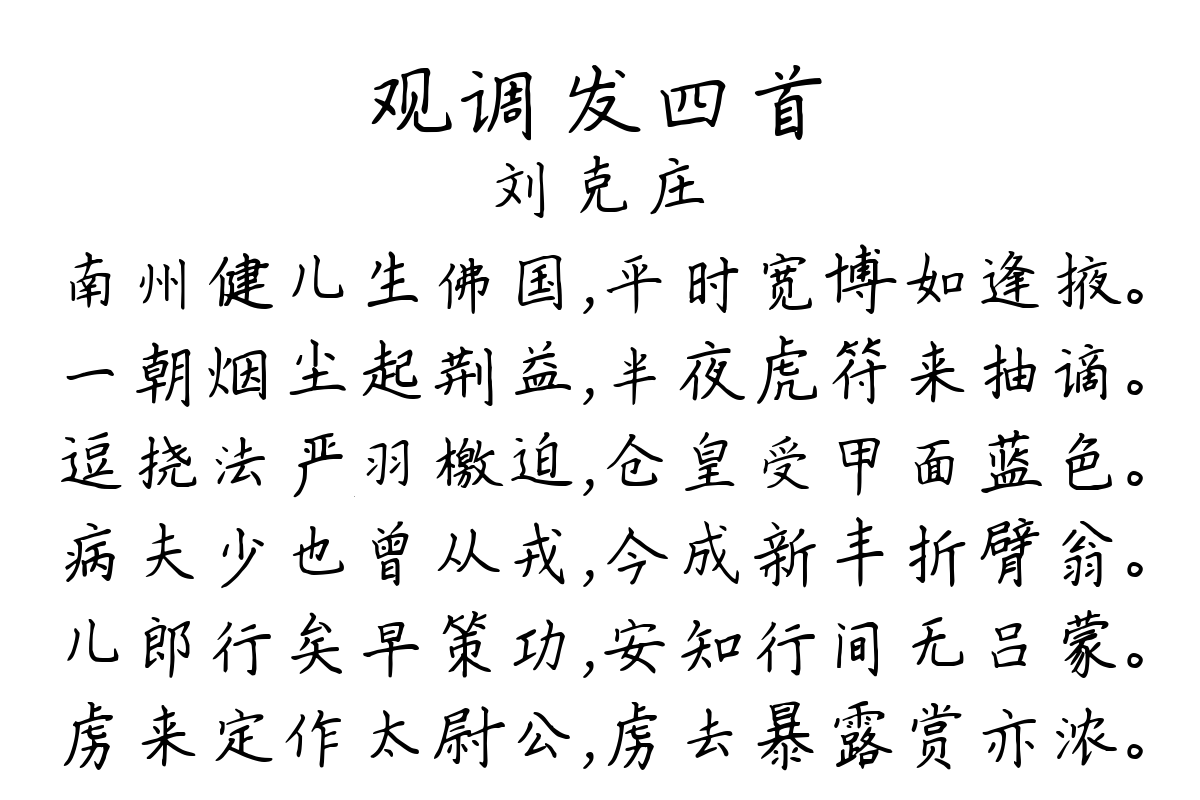 观调发四首
刘克庄
南州健儿生佛国,平时宽博如逢掖。
一朝烟尘起荆益,半夜虎符来抽谪。
逗挠法严羽檄迫,仓皇受甲面蓝色。
病夫少也曾从戎,今成新丰折臂翁。
儿郎行矣早策功,安知行间无吕蒙。
虏来定作太尉公,虏去暴露赏亦浓。